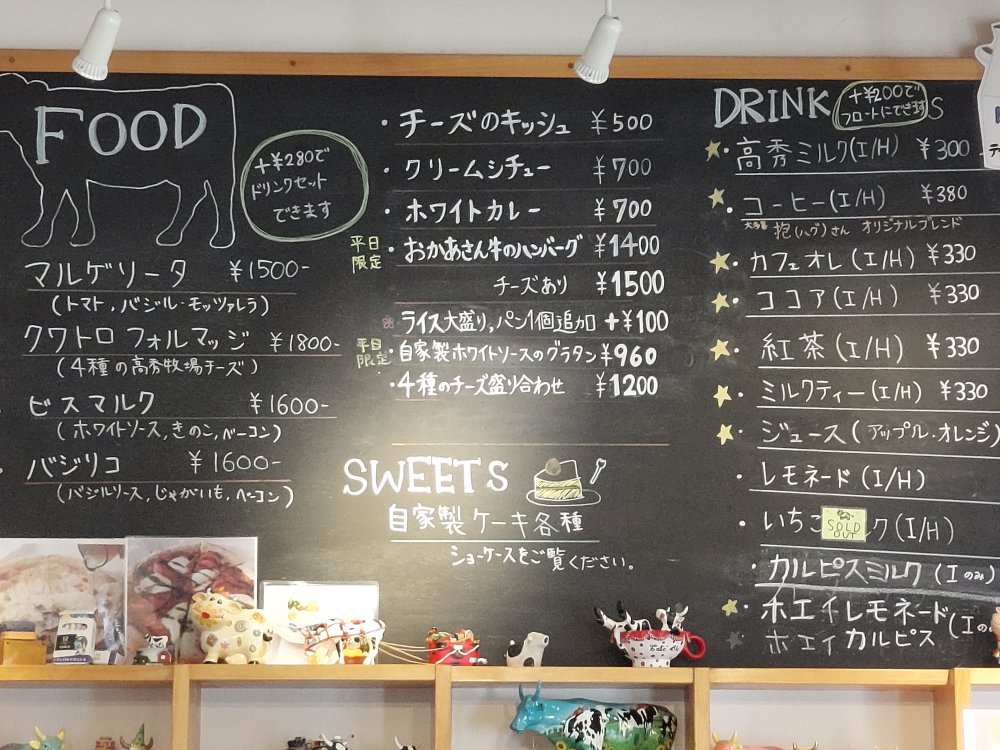 FOOD
+¥280で
ドリンクセット
できます
マルゲリータ ¥1500-
(トマト,バジル・モッツァレラ)
クワトロ フォルマッジ ¥1800-
(4種の高秀牧場チーズ)
ビスマルク ¥1600-
(ホワイトソース,きのこ,ベーコン)
バジリコ ¥1600-
(バジルソース,じゃがいも,ベーコン)
・チーズのキッシュ ¥500
・クリームシチュー ¥700
・ホワイトカレー ¥700
平日限定・おかあさん牛のハンバーグ ¥1400
チーズあり ¥1500
ライス大盛り,パン1個追加 +¥100
平日限定・自家製ホワイトソースのグラタン ¥960
・4種のチーズ盛り合わせ ¥1200
SWEETS
自家製ケーキ各種
ショーケースをご覧ください。
DRINKS
+¥200で
フロートにできます
★・高秀ミルク(I/H) ¥300
★・コーヒー(I/H) ¥380
抱(ハグ)さん オリジナルブレンド
★・カフェオレ(I/H) ¥330
★・ココア(I/H) ¥330
★・紅茶(I/H) ¥330
★・ミルクティー(I/H) ¥330
★・ジュース(アップル・オレンジ)
・レモネード(I/H)
・いちご ルク(I/H)
SOLD OUT
・カルピスミルク(Iのみ)
★・ホエイレモネード
★ ホエイカルピス
(Iの